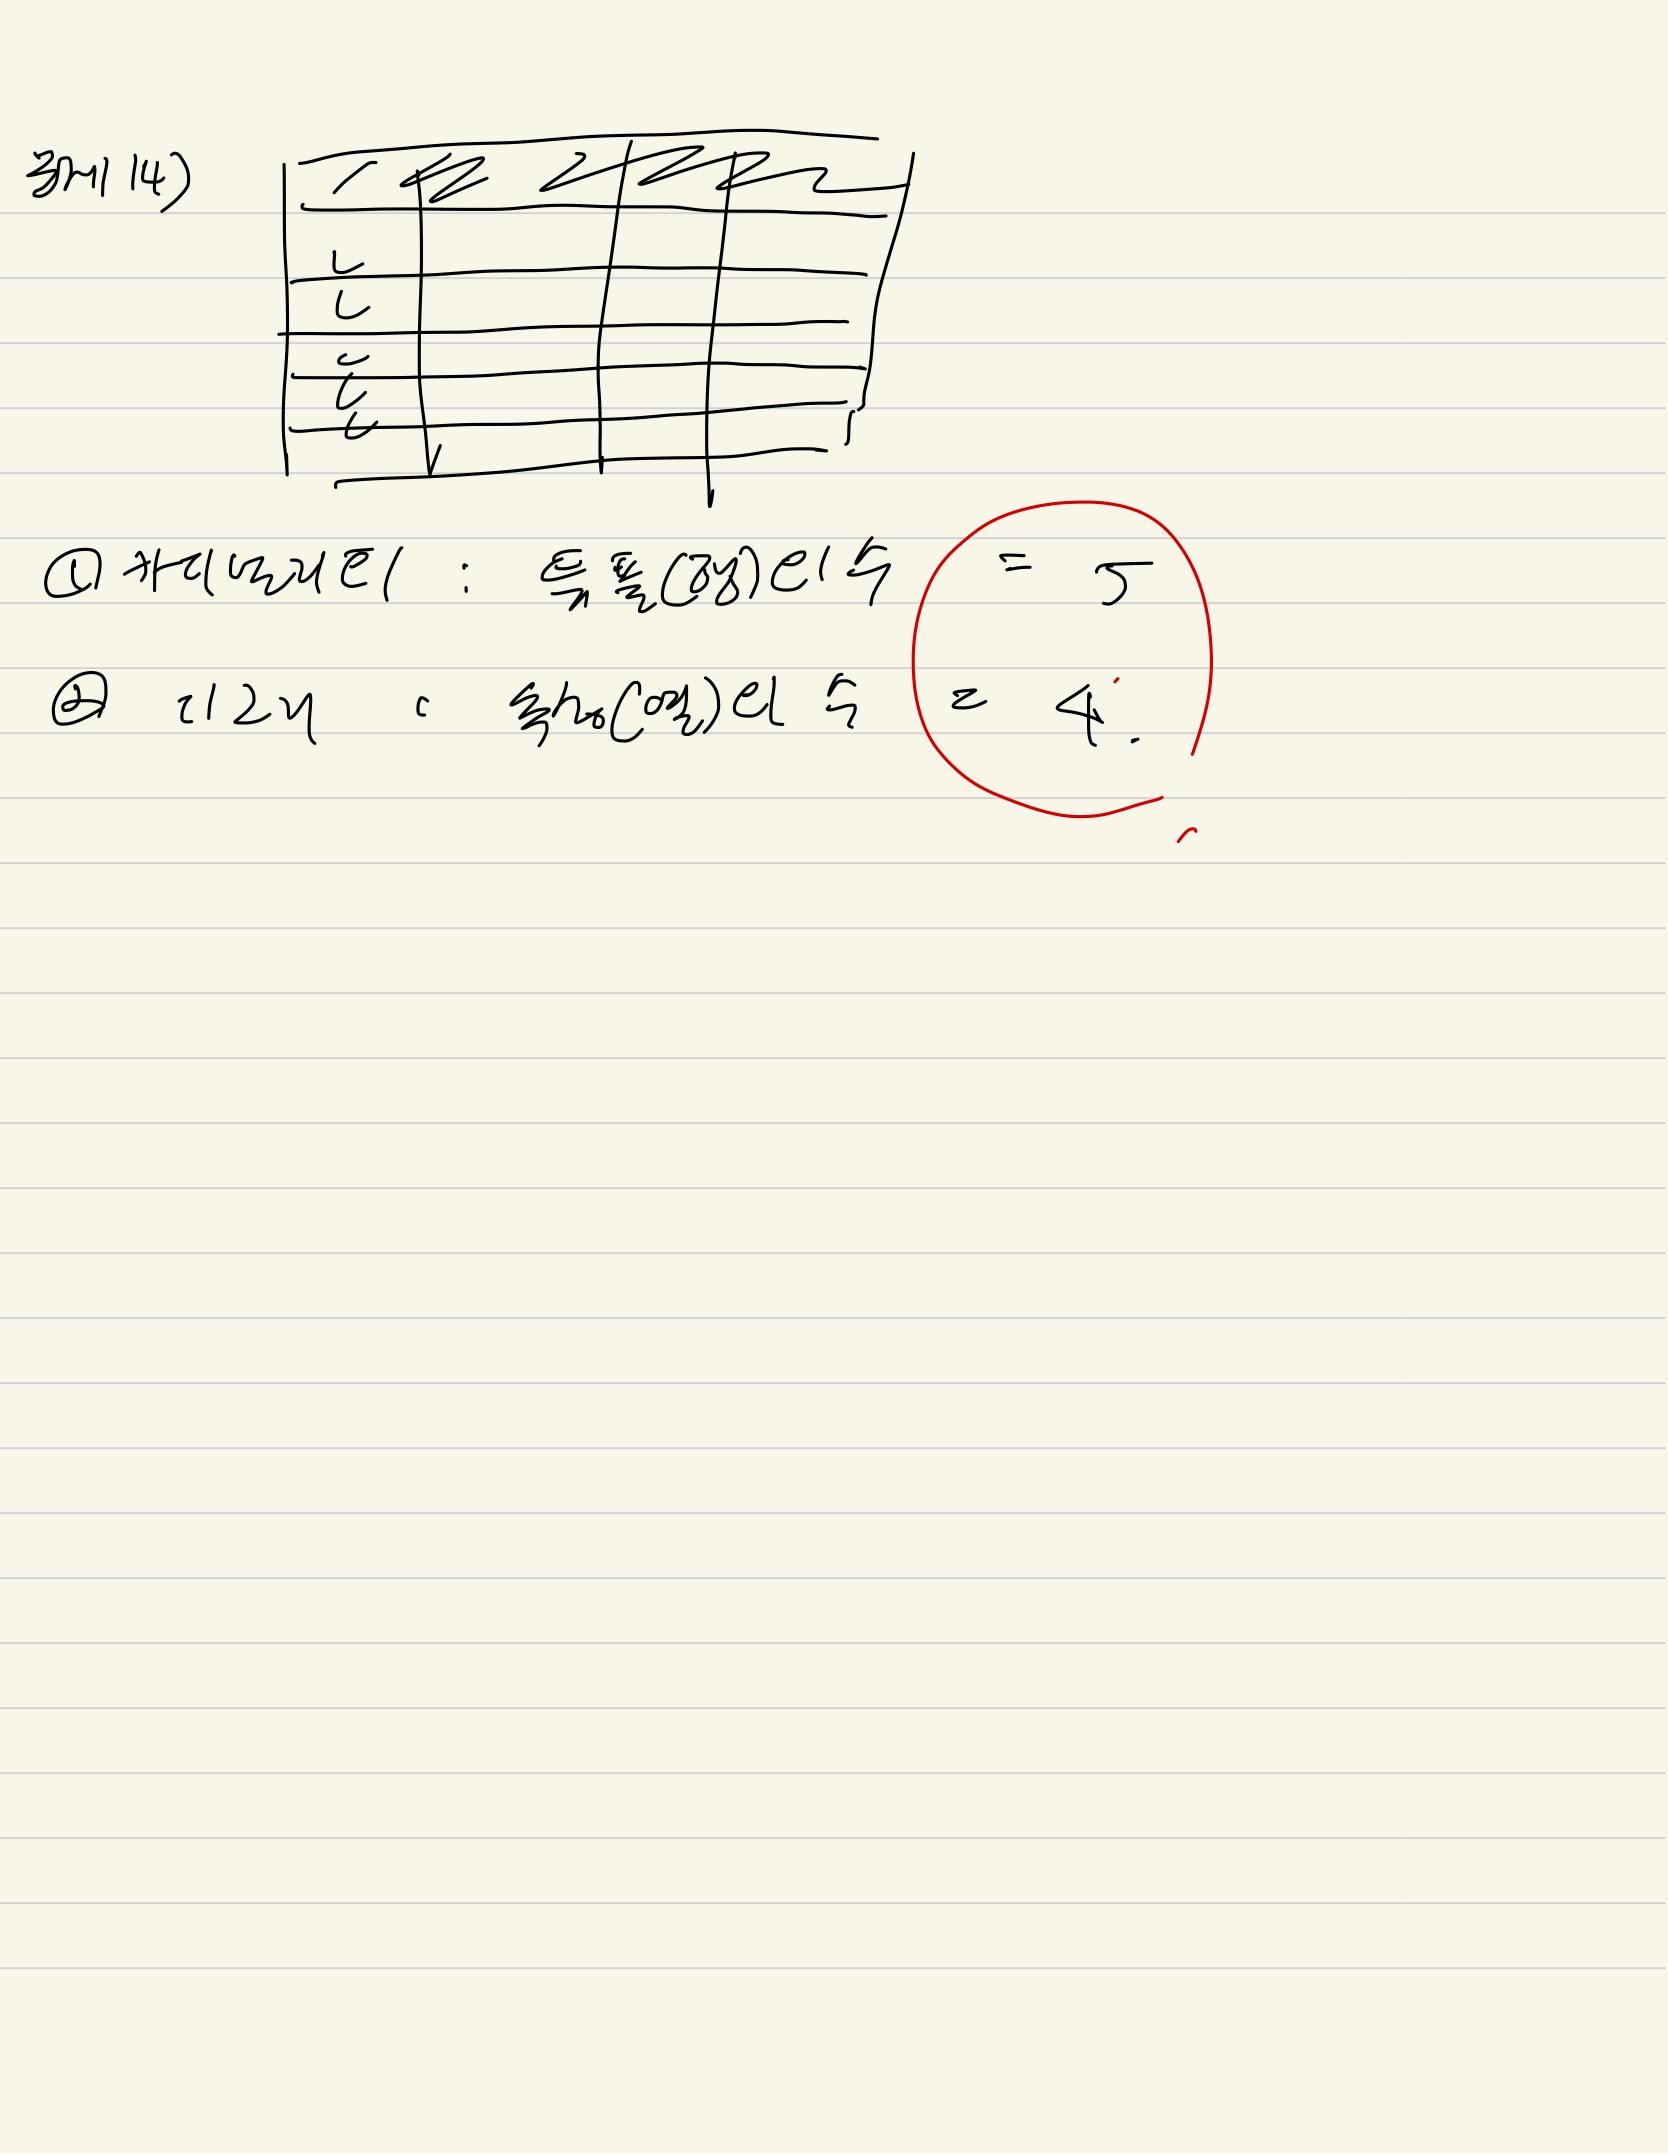 문제 14)
① 카디널리티 : 튜플(행)의 수 = 5
② 디그리 : 속성(열)의 수 = 4.